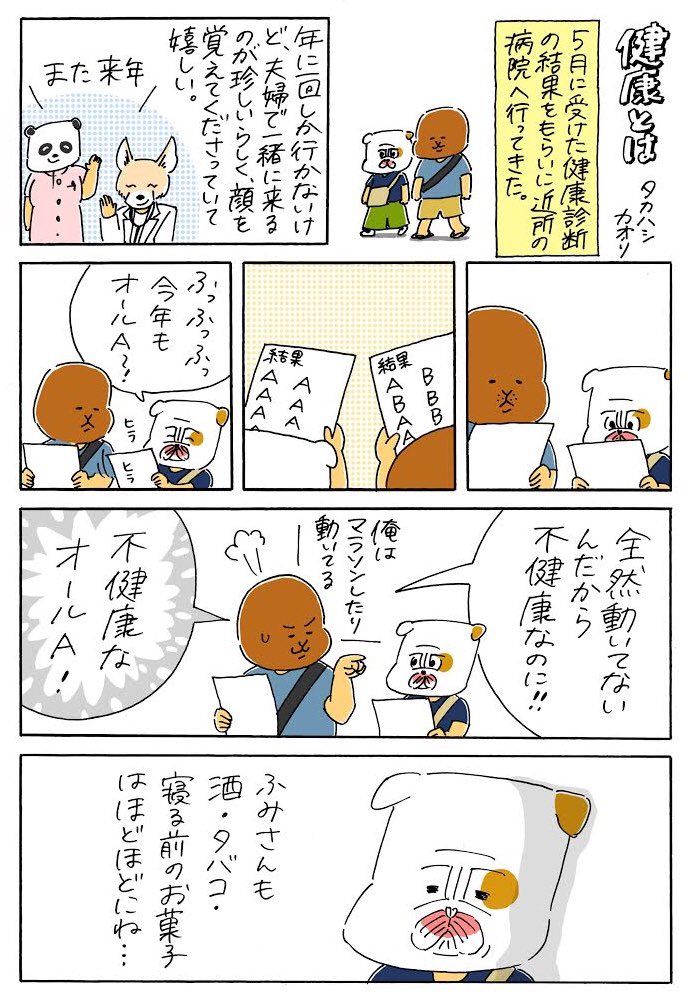 健康とは
タカハシ
カオリ
5月に受けた健康診断
の結果をもらいに近所の
病院へ行ってきた。
年に一回しか行かないけ
ど、夫婦で一緒に来る
のが珍しいらしく、顔を
覚えてくださっていて
嬉しい。
また来年
結果
B
B
B
A
B
A
A
結果
A
A
A
A
A
A
A
ふっふっふっ
今年も
オールA〜!
ヒラ
ヒラ
全然動いてない
んだから
不健康なのに!!
俺は
マラソンしたり
動いてる
不健康な
オールA!
ふみさんも
酒・タバコ・
寝る前のお菓子
はほどほどにね…